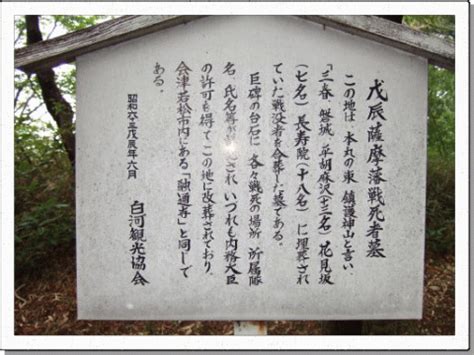 戊辰薩摩藩戦死者墓
この地は、本丸の東、鎮護神山と言い、
「三春、磐城、草胡麻沢(十三名)花見坂
(七名)長寿院(十八名)に埋葬され
ていた戦没者を合葬した墓である。
巨碑の台石に、各々戦死の場所、所属隊
名、氏名等が され、いづれも内務大臣
の許可を得て、この地に改葬されており、
会津若松市内にある「融通寺」と同じで
ある。
昭和六三戊辰年六月
白河観光協会